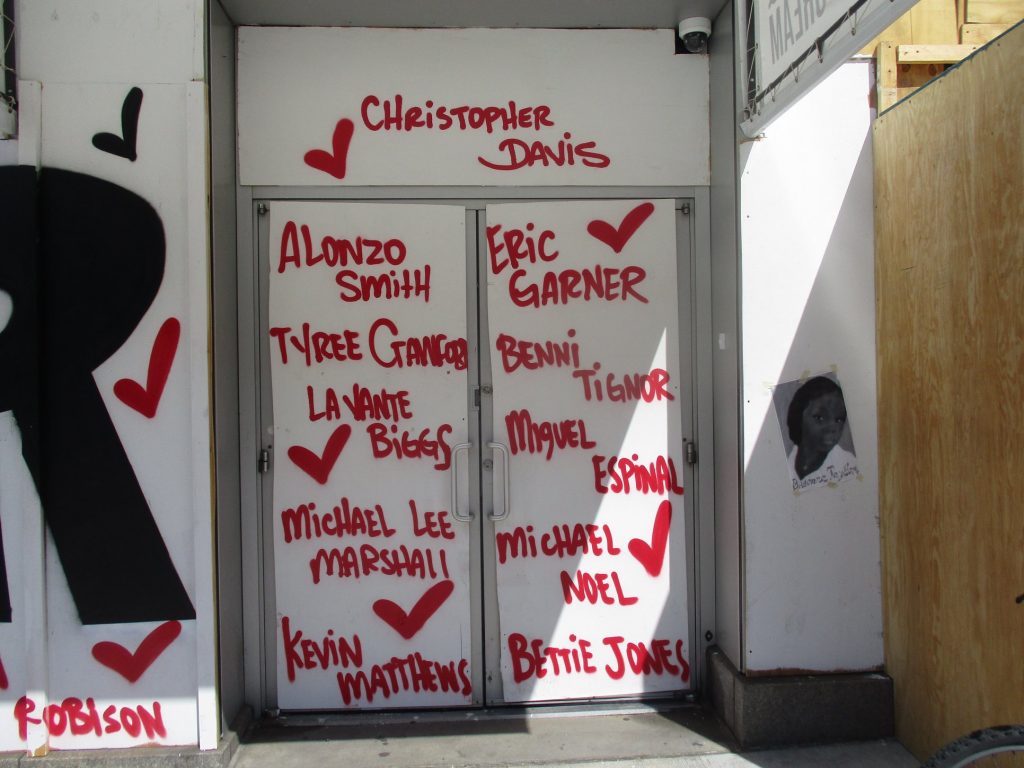 CHRISTOPHER
DAVIS
ALONZO
SMITH
TYREE
LAVANTE
BIGGS
MICHAEL LEE
MARSHALL
KEVIN
MATTHEWS
ERIC
GARNER
BENNI
TIGNOR
MIGUEL
ESPINAL
MICHAEL
NOEL
BETTIE JONES
ROBISON
R
DREAM
Breonna Taylor